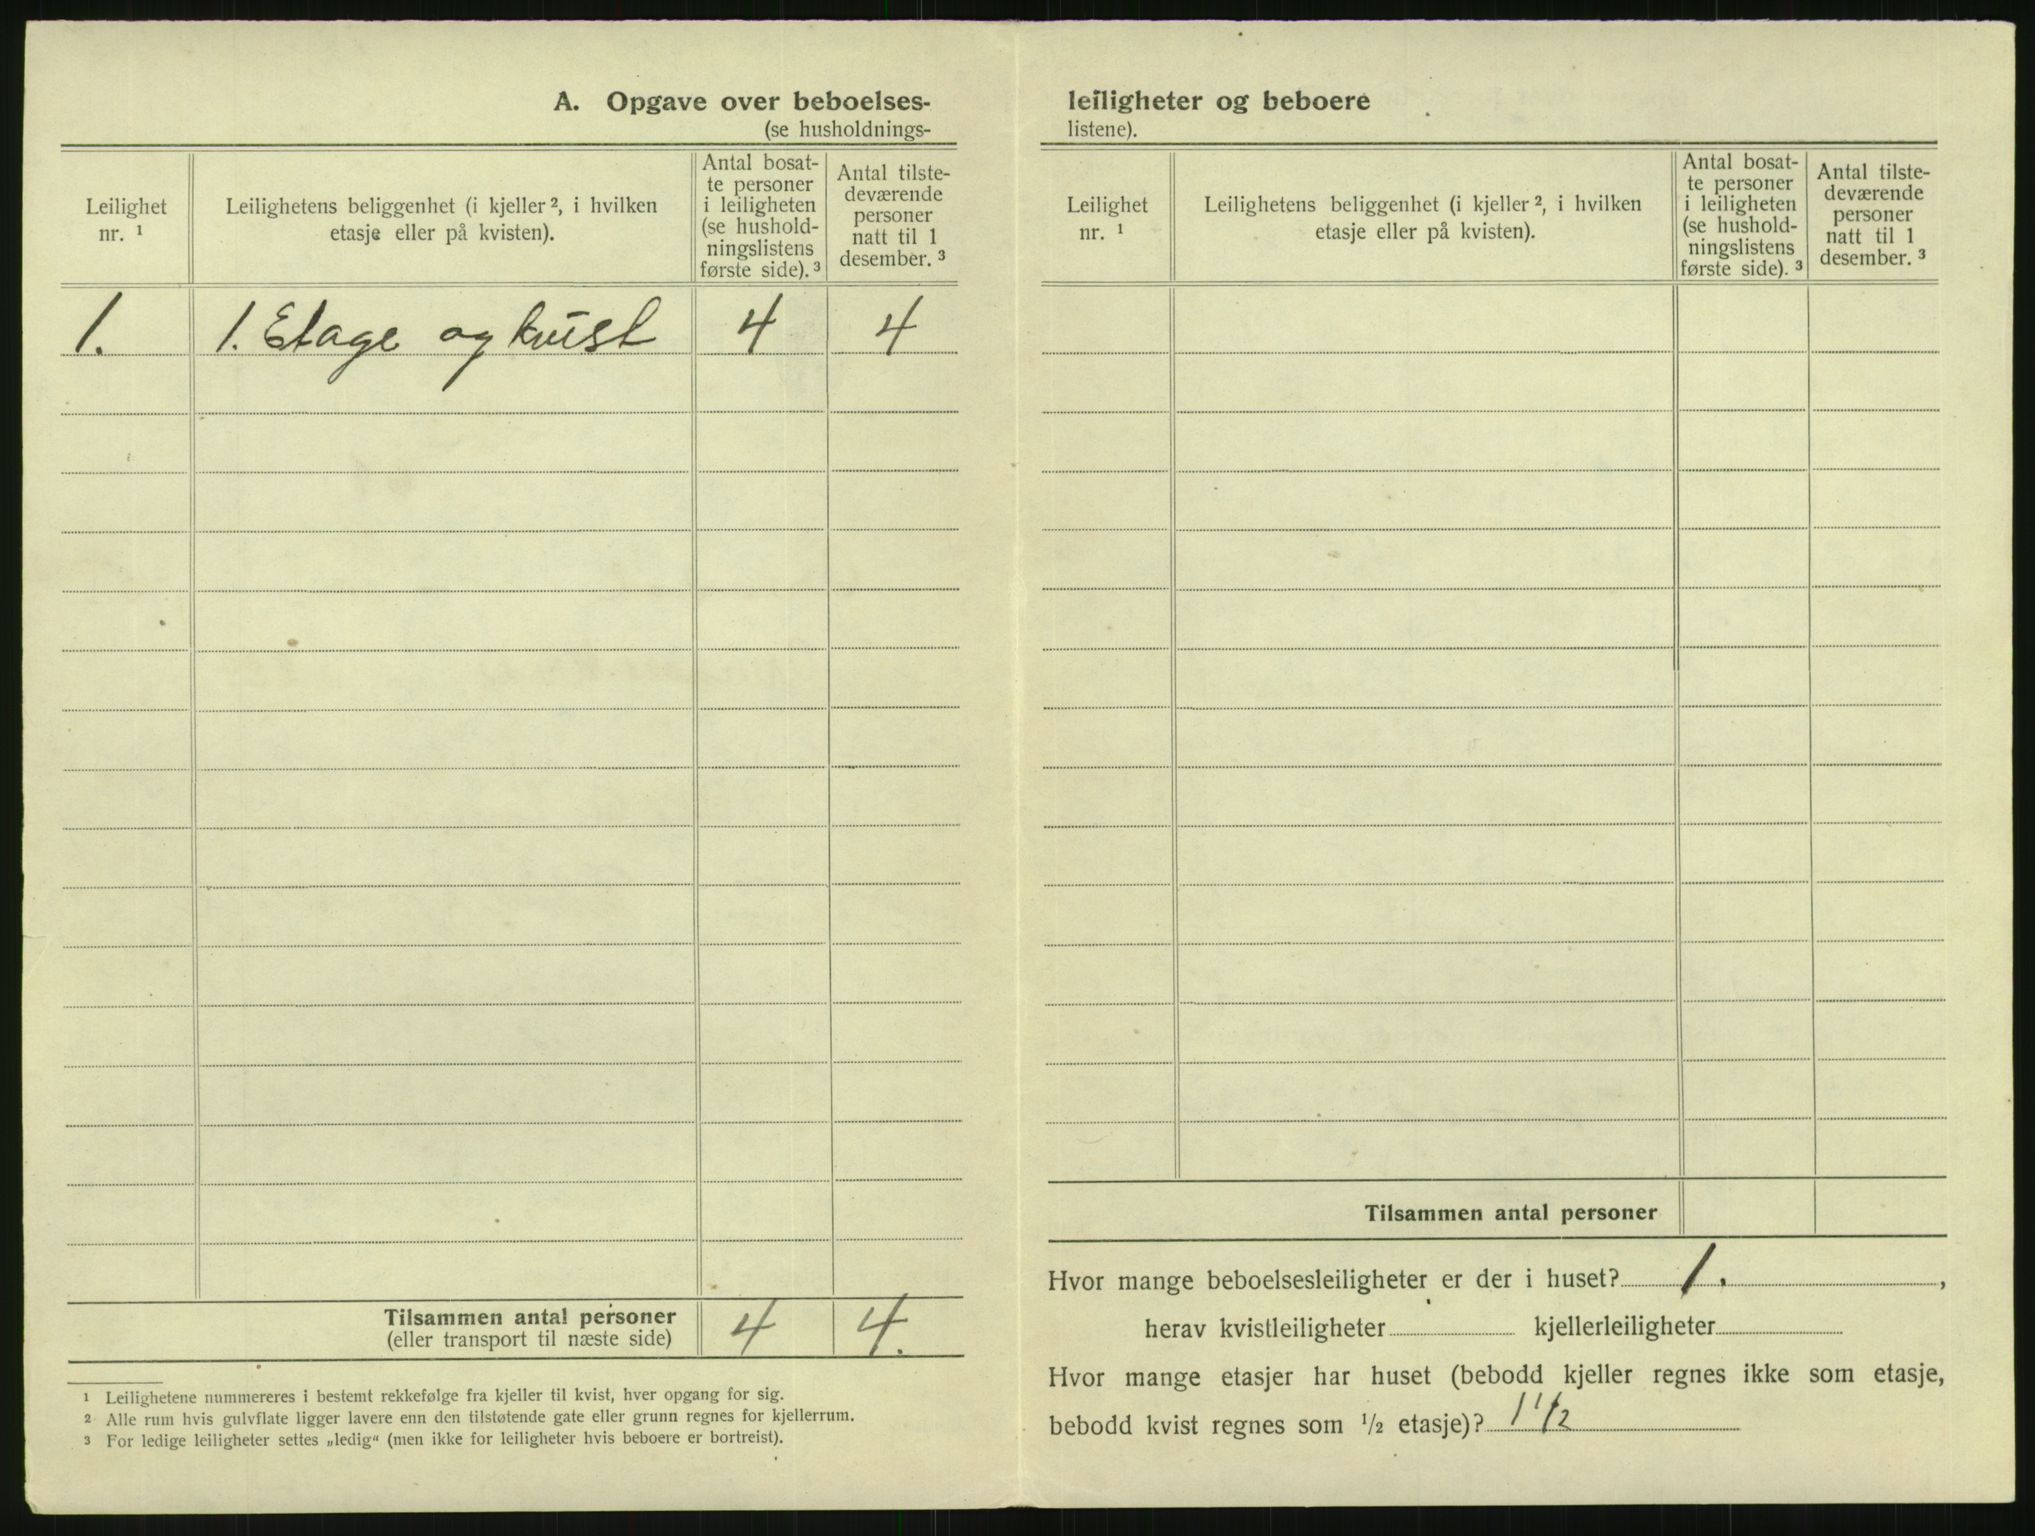 A. Opgave over beboelses-
(se husholdnings-
Leilighet
nr. ¹
Leilighetens beliggenhet (i kjeller ², i hvilken
etasje eller på kvisten).
Antal bosat-
te personer
i leiligheten
(se hushold-
ningslistens
første side). ³
Antal tilste-
deværende
personer
natt til 1
desember. ³
1. 1. Etage og kvist 4 4
Tilsammen antal personer
(eller transport til næste side)
4 4.
¹ Leilighetene nummereres i bestemt rekkefølge fra kjeller til kvist, hver opgang for sig.
² Alle rum hvis gulvflate ligger lavere enn den tilstøtende gate eller grunn regnes for kjellerrum.
³ For ledige leiligheter settes „ledig“ (men ikke for leiligheter hvis beboere er bortreist).
leiligheter og beboere
listene).
Leilighet
nr. ¹
Leilighetens beliggenhet (i kjeller ², i hvilken
etasje eller på kvisten).
Antal bosat-
te personer
i leiligheten
(se hushold-
ningslistens
første side). ³
Antal tilste-
deværende
personer
natt til 1
desember. ³
Tilsammen antal personer
Hvor mange beboelsesleiligheter er der i huset? 1. ,
herav kvistleiligheter kjellerleiligheter
Hvor mange etasjer har huset (bebodd kjeller regnes ikke som etasje,
bebodd kvist regnes som ½ etasje)? 1 1/2